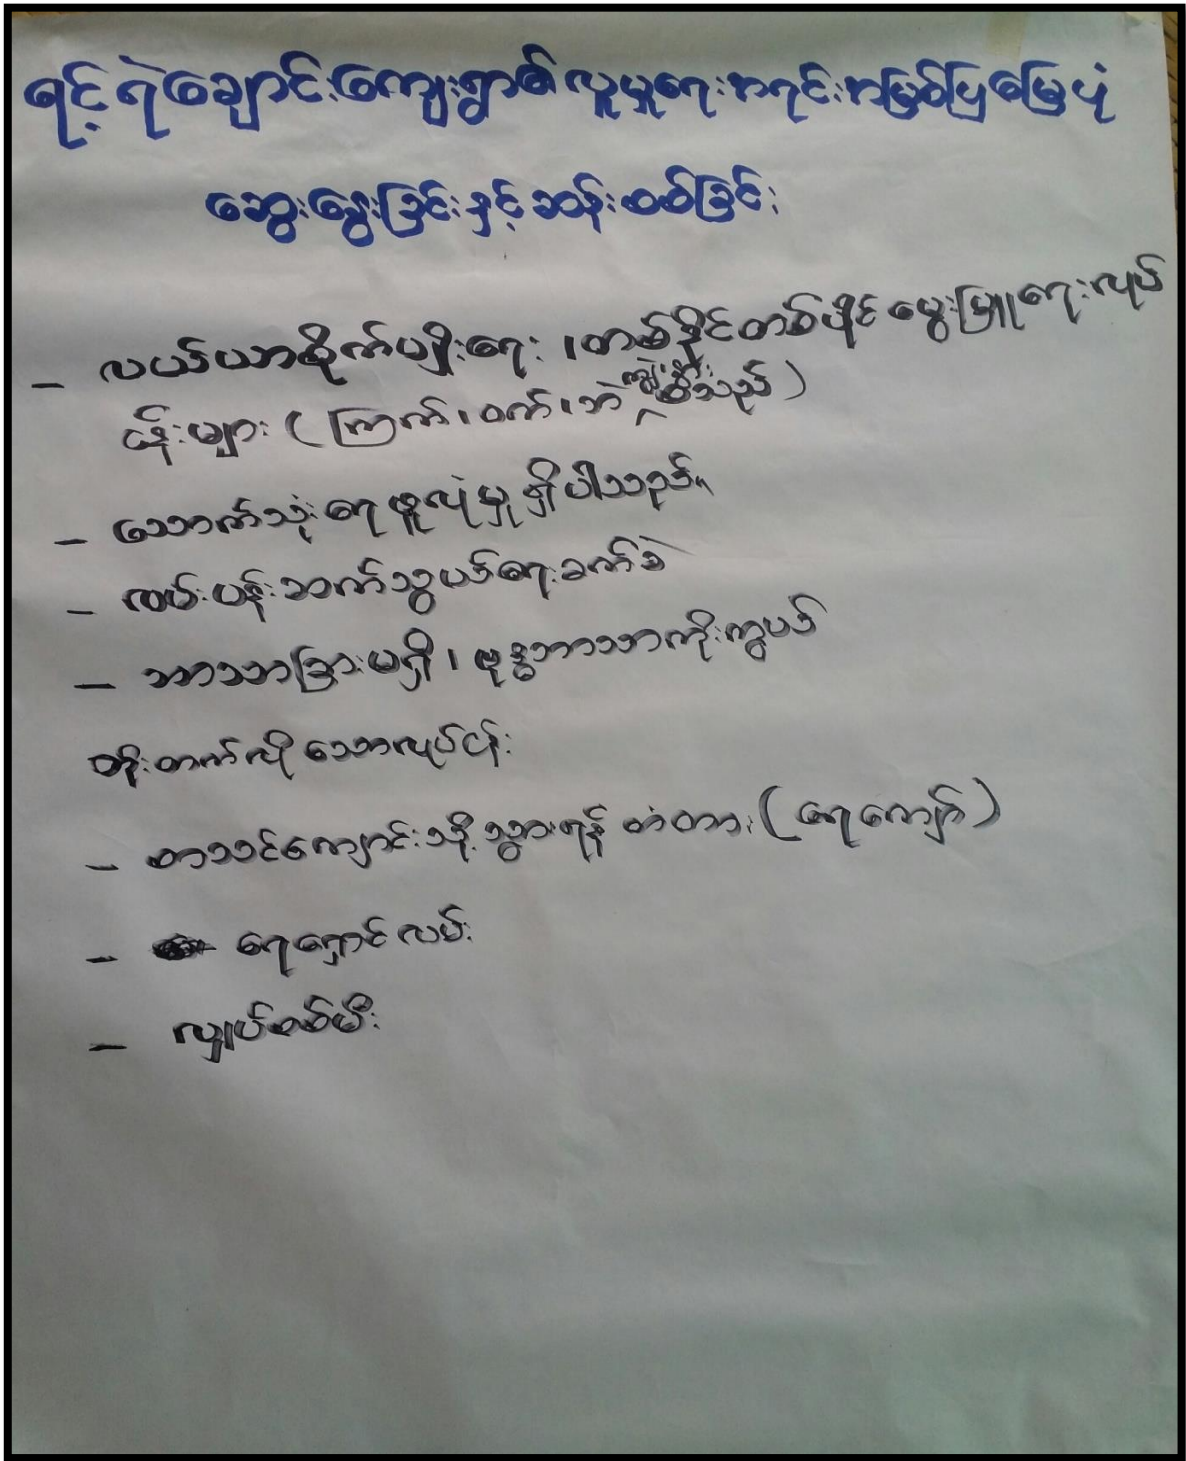 ရင့်ရဲချောင်းကျေးရွာ၏ လူမှုရေးအရင်းအမြစ်ပြမြေပုံ
ဆွေးနွေးခြင်းနှင့် ဆန်းစစ်ခြင်း
– လယ်ယာစိုက်ပျိုးရေး ၊ တစ်နိုင်တစ်ပိုင် မွေးမြူရေးလုပ်
ငန်းများ ( ကြက် ၊ ဝက် ၊ ဘဲ ကျွဲ နွား သည် )
– သောက်သုံးရေဖူလုံမှု ရှိပါသည်။
– လမ်းပန်းဆက်သွယ်ရေးခက်ခဲ
– ဘာသာခြားမရှိ ၊ ဗုဒ္ဓဘာသာကိုးကွယ်
တိုးတက်လိုသောလုပ်ငန်း
– စာသင်ကျောင်းသို့ သွားရန် တံတား ( ရေကျော် )
– ရေရှောင်လမ်း
– လျှပ်စစ်မီး